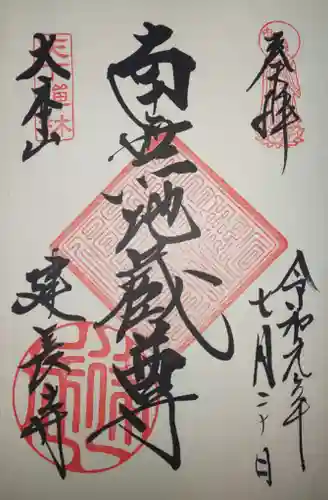 奉拝
令和元年
七月二十日
南無地蔵尊
大本山
建長寺